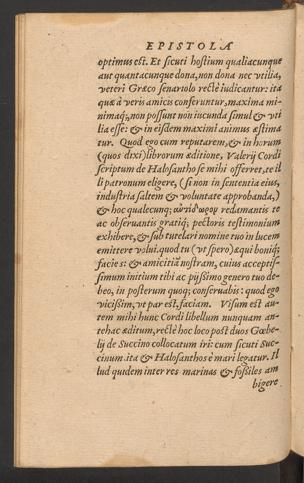 EPISTOLA
optimus est. Et sicuti hostium qualiacunque
aut quantacunque dona, non dona nec vtilia,
veteri Græco senariolo rectè iudicantur: ita
quæ à veris amicis conferuntur, maxima mi-
nimaq;, non possunt non iucunda simul & vti
lia esse: & in eisdem maximi animus æstima
tur. Quod ego cum reputarem, & in horum
(quos dixi) librorum æditione, Valerij Cordi
scriptum de Halosantho se mihi offerret, te il
li patronum eligere, (si non in sententia eius,
industria saltem & voluntate approbanda,)
& hoc qualecunq; ἀντίδωρον redamantis te
ac obseruantis gratiq; pectoris testimonium
exhibere, & sub tutelari nomine tuo in lucem
emittere volui. quod tu (vt spero) æqui boniq;
facies: & amicitiæ nostram, cuius acceptis-
simum initium tibi ac pijssimo genero tuo de-
beo, in posterum quoq; conseruabis: quod ego
vicissim, vt par est, faciam. Visum est au-
tem mihi hunc Cordi libellum nunquam an-
tehac æditum, rectè hoc loco post duos Gœbe-
lij de Succino collocatum iri: cum sicuti Suc-
cinum. ita & Halosanthos è mari legatur. Il
lud quidem inter res marinas & fossiles am
bigere